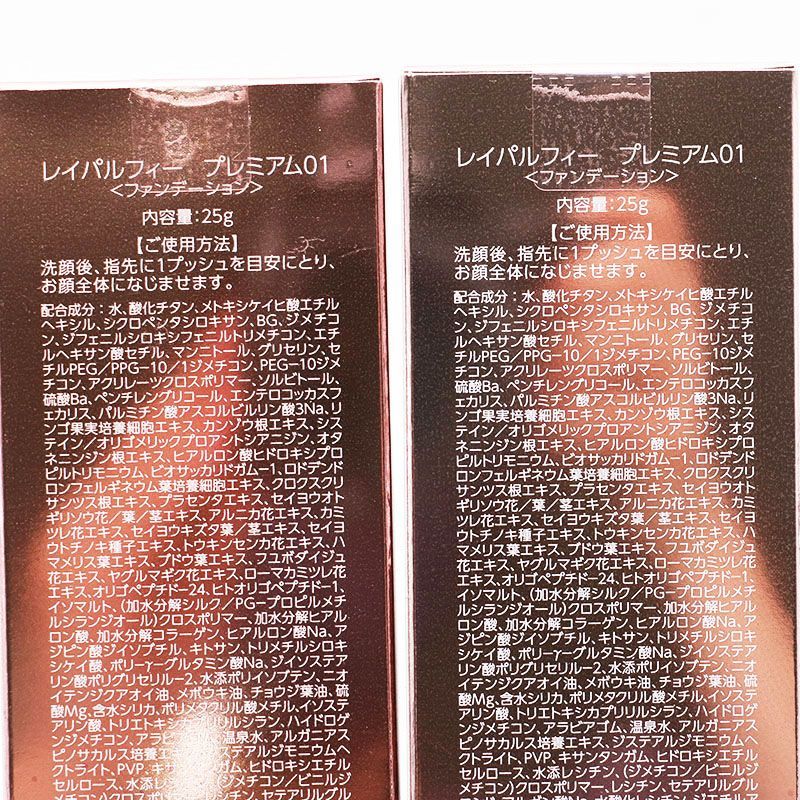 レイパルフィー　プレミアム01
<ファンデーション>
内容量:25g
【ご使用方法】
洗顔後、指先に1プッシュを目安にとり、
お顔全体になじませます。
配合成分:水、酸化チタン、メトキシケイヒ酸エチル
ヘキシル、シクロペンタシロキサン、BG、ジメチコ
ン、ジフェニルシロキシフェニルトリメチコン、エチ
ルヘキサン酸セチル、マンニトール、グリセリン、セ
チルPEG/PPG-10/1ジメチコン、PEG-10ジメ
チコン、アクリレーツクロスポリマー、ソルビトール、
硫酸Ba、ペンチレングリコール、エンテロコッカスフ
ェカリス、パルミチン酸アスコルビルリン酸3Na、リ
ンゴ果実培養細胞エキス、カンゾウ根エキス、シス
テイン/オリゴメリックプロアントシアニジン、オタ
ネニンジン根エキス、ヒアルロン酸ヒドロキシプロ
ピルトリモニウム、ビオサッカリドガム-1、ロドデンド
ロンフェルギネウム葉培養細胞エキス、クロクスクリ
サンツス根エキス、プラセンタエキス、セイヨウオト
ギリソウ花/葉/茎エキス、アルニカ花エキス、カミ
ツレ花エキス、セイヨウキズタ葉/茎エキス、セイヨ
ウトチノキ種子エキス、トウキンセンカ花エキス、ハ
マメリス葉エキス、ブドウ葉エキス、フユボダイジュ
花エキス、ヤグルマギク花エキス、ローマカミツレ花
エキス、オリゴペプチド-24、ヒトオリゴペプチド-1、
イソマルト、(加水分解シルク/PG-プロピルメチ
ルシランジオール)クロスポリマー、加水分解ヒアル
ロン酸、加水分解コラーゲン、ヒアルロン酸Na、ア
ジピン酸ジイソプロピル、キトサン、トリメチルシロキ
シケイ酸、ポリ-γ-グルタミン酸Na、ジイソステア
リン酸ポリグリセリル-2、水添ポリイソブテン、ニオ
イテンジクアオイ油、メボウキ油、チョウジ葉油、硫
酸Mg、含水シリカ、ポリメタクリル酸メチル、イソステ
アリン酸、トリエトキシカプリリルシラン、ハイドロゲ
ンジメチコン、アラビアゴム、温泉水、アルガニアス
ピノサカルス培養エキス、ジステアルジモニウムヘ
クトライト、PVP、キサンタンガム、ヒドロキシエチル
セルロース、水添レシチン、(ジメチコン/ビニルジ
メチコン)クロスポリマー、レシチン、セテアリルグル
レイパルフィー　プレミアム01
<ファンデーション>
内容量:25g
【ご使用方法】
洗顔後、指先に1プッシュを目安にとり、
お顔全体になじませます。
配合成分:水、酸化チタン、メトキシケイヒ酸エチル
ヘキシル、シクロペンタシロキサン、BG、ジメチコ
ン、ジフェニルシロキシフェニルトリメチコン、エチ
ルヘキサン酸セチル、マンニトール、グリセリン、セ
チルPEG/PPG-10/1ジメチコン、PEG-10ジメ
チコン、アクリレーツクロスポリマー、ソルビトール、
硫酸Ba、ペンチレングリコール、エンテロコッカスフ
ェカリス、パルミチン酸アスコルビルリン酸3Na、リ
ンゴ果実培養細胞エキス、カンゾウ根エキス、シス
テイン/オリゴメリックプロアントシアニジン、オタ
ネニンジン根エキス、ヒアルロン酸ヒドロキシプロ
ピルトリモニウム、ビオサッカリドガム-1、ロドデンド
ロンフェルギネウム葉培養細胞エキス、クロクスクリ
サンツス根エキス、プラセンタエキス、セイヨウオト
ギリソウ花/葉/茎エキス、アルニカ花エキス、カミ
ツレ花エキス、セイヨウキズタ葉/茎エキス、セイヨ
ウトチノキ種子エキス、トウキンセンカ花エキス、ハ
マメリス葉エキス、ブドウ葉エキス、フユボダイジュ
花エキス、ヤグルマギク花エキス、ローマカミツレ花
エキス、オリゴペプチド-24、ヒトオリゴペプチド-1、
イソマルト、(加水分解シルク/PG-プロピルメチ
ルシランジオール)クロスポリマー、加水分解ヒアル
ロン酸、加水分解コラーゲン、ヒアルロン酸Na、ア
ジピン酸ジイソプロピル、キトサン、トリメチルシロキ
シケイ酸、ポリ-γ-グルタミン酸Na、ジイソステア
リン酸ポリグリセリル-2、水添ポリイソブテン、ニオ
イテンジクアオイ油、メボウキ油、チョウジ葉油、硫
酸Mg、含水シリカ、ポリメタクリル酸メチル、イソステ
アリン酸、トリエトキシカプリリルシラン、ハイドロゲ
ンジメチコン、アラビアゴム、温泉水、アルガニアス
ピノサカルス培養エキス、ジステアルジモニウムヘク
トライト、PVP、キサンタンガム、ヒドロキシエチル
セルロース、水添レシチン、(ジメチコン/ビニルジ
メチコン)クロスポリマー、レシチン、セテアリルグル